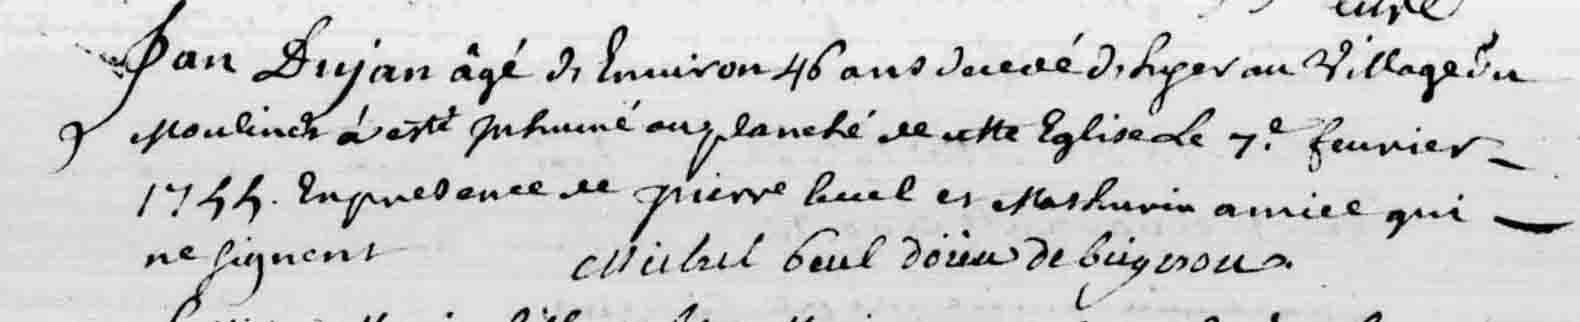 Jan Dujan âgé de Enuiron 46 ans decedé d'hyer au Village du
Moulinet à esté Inhumé au planché de cette Eglise Le 7e feurier
1744. En presence de pierre et Mathurin amice qui
ne signent Michel doien de